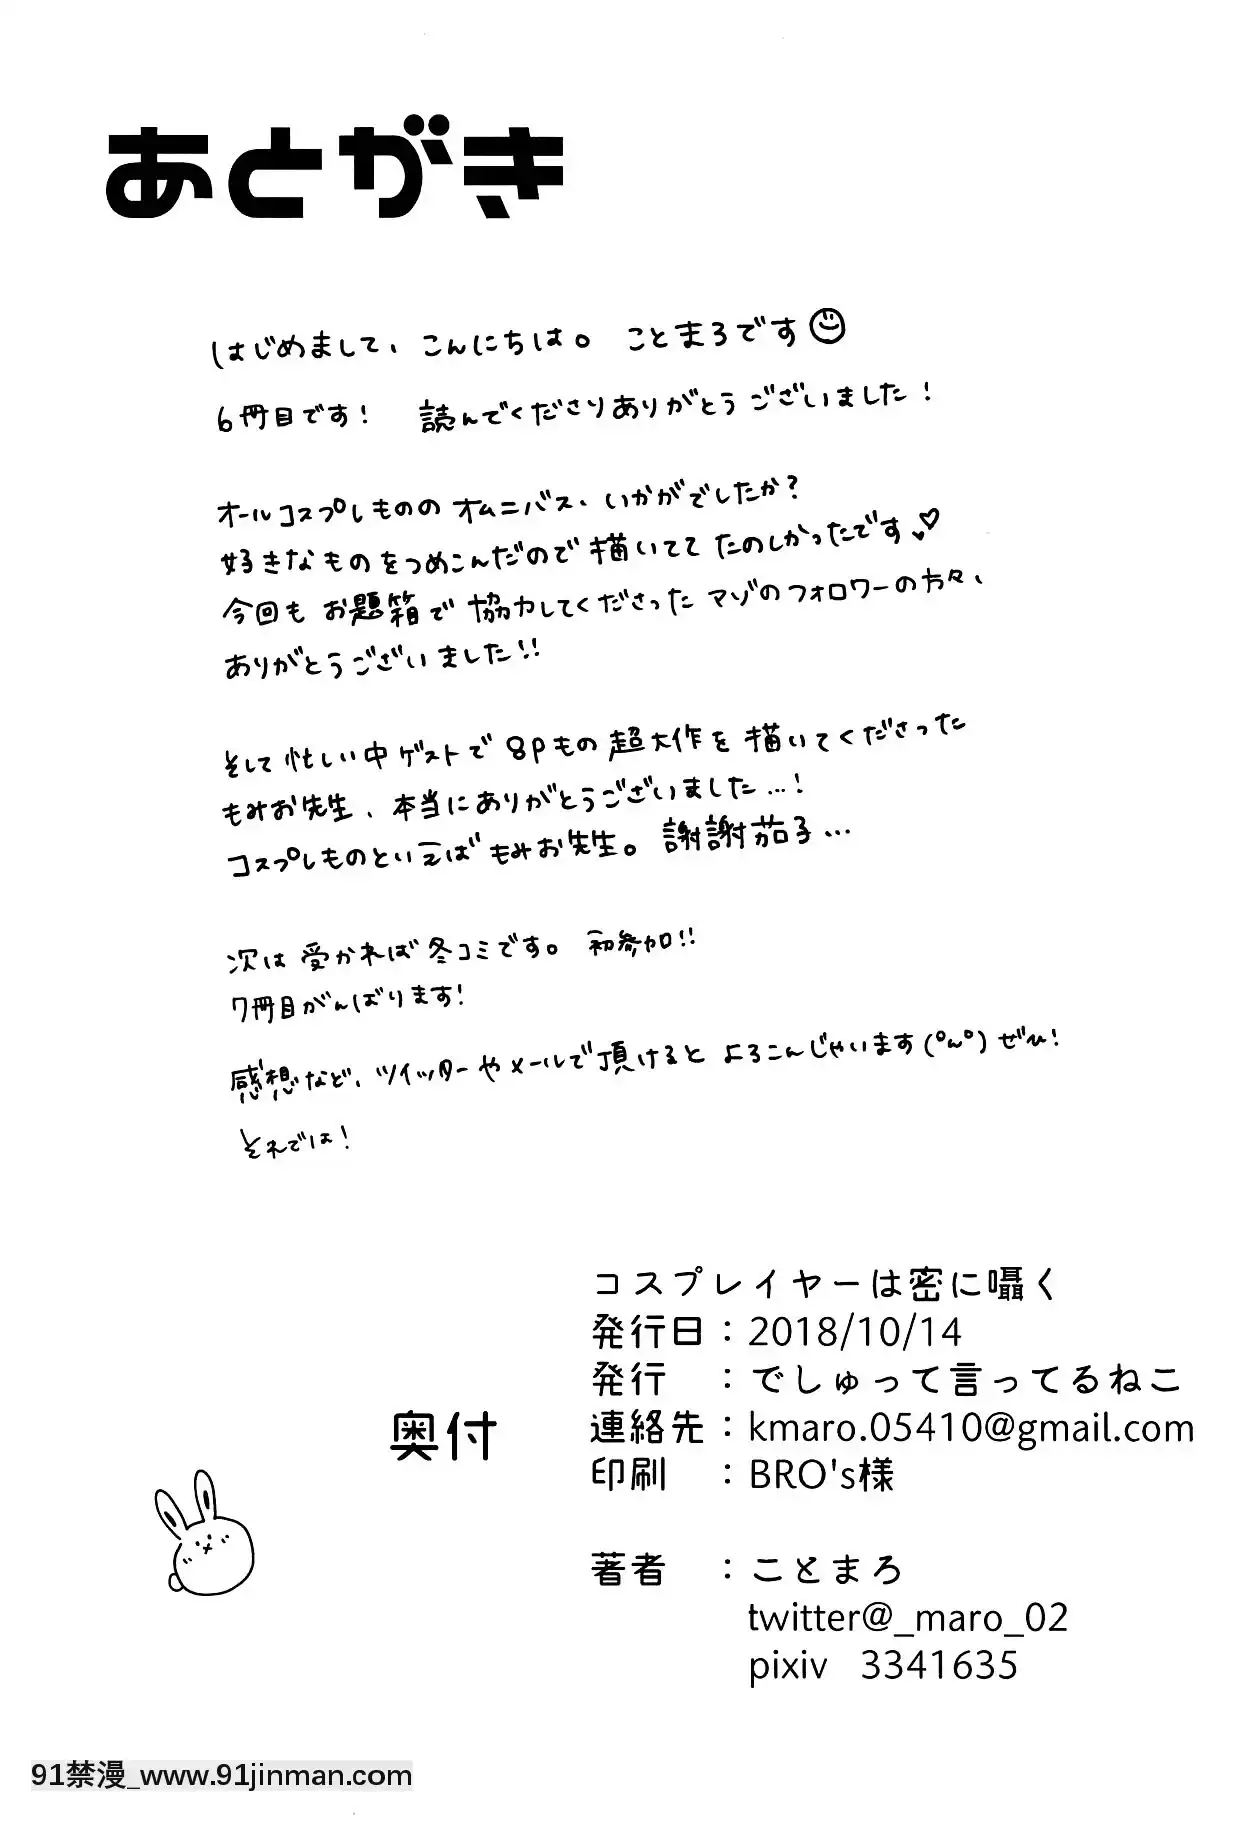 あとがき
はじめまして、こんにちは。 ことまろです
6冊目です! 読んでくださりありがとうございました!
オールコスプレもののオムニバス、いかがでしたか?
好きなものをつめこんだので描いてて たのしかったです♡
今回もお題箱で協力してくださったマゾのフォロワーの方々、
ありがとうございました!!
そして忙しい中ゲストで8pもの超大作を描いてくださった
もみお先生、本当にありがとうございました…!
コスプレものといえばもみお先生。謝謝茄子…
次は受かれば冬コミです。 初参加!!
7冊目がんばります!
感想など、ツイッターやメールで頂けると よろこんじゃいます(°ω°)ぜひ!
それでは!
コスプレイヤーは密に囁く
発行日：2018/10/14
発行 ：でしゅって言ってるねこ
奥付
連絡先：kmaro.05410@gmail.com
印刷 ：BRO's様
著者 ：ことまろ
twitter@_maro_02
pixiv 3341635
91禁漫_www.91jinman.com